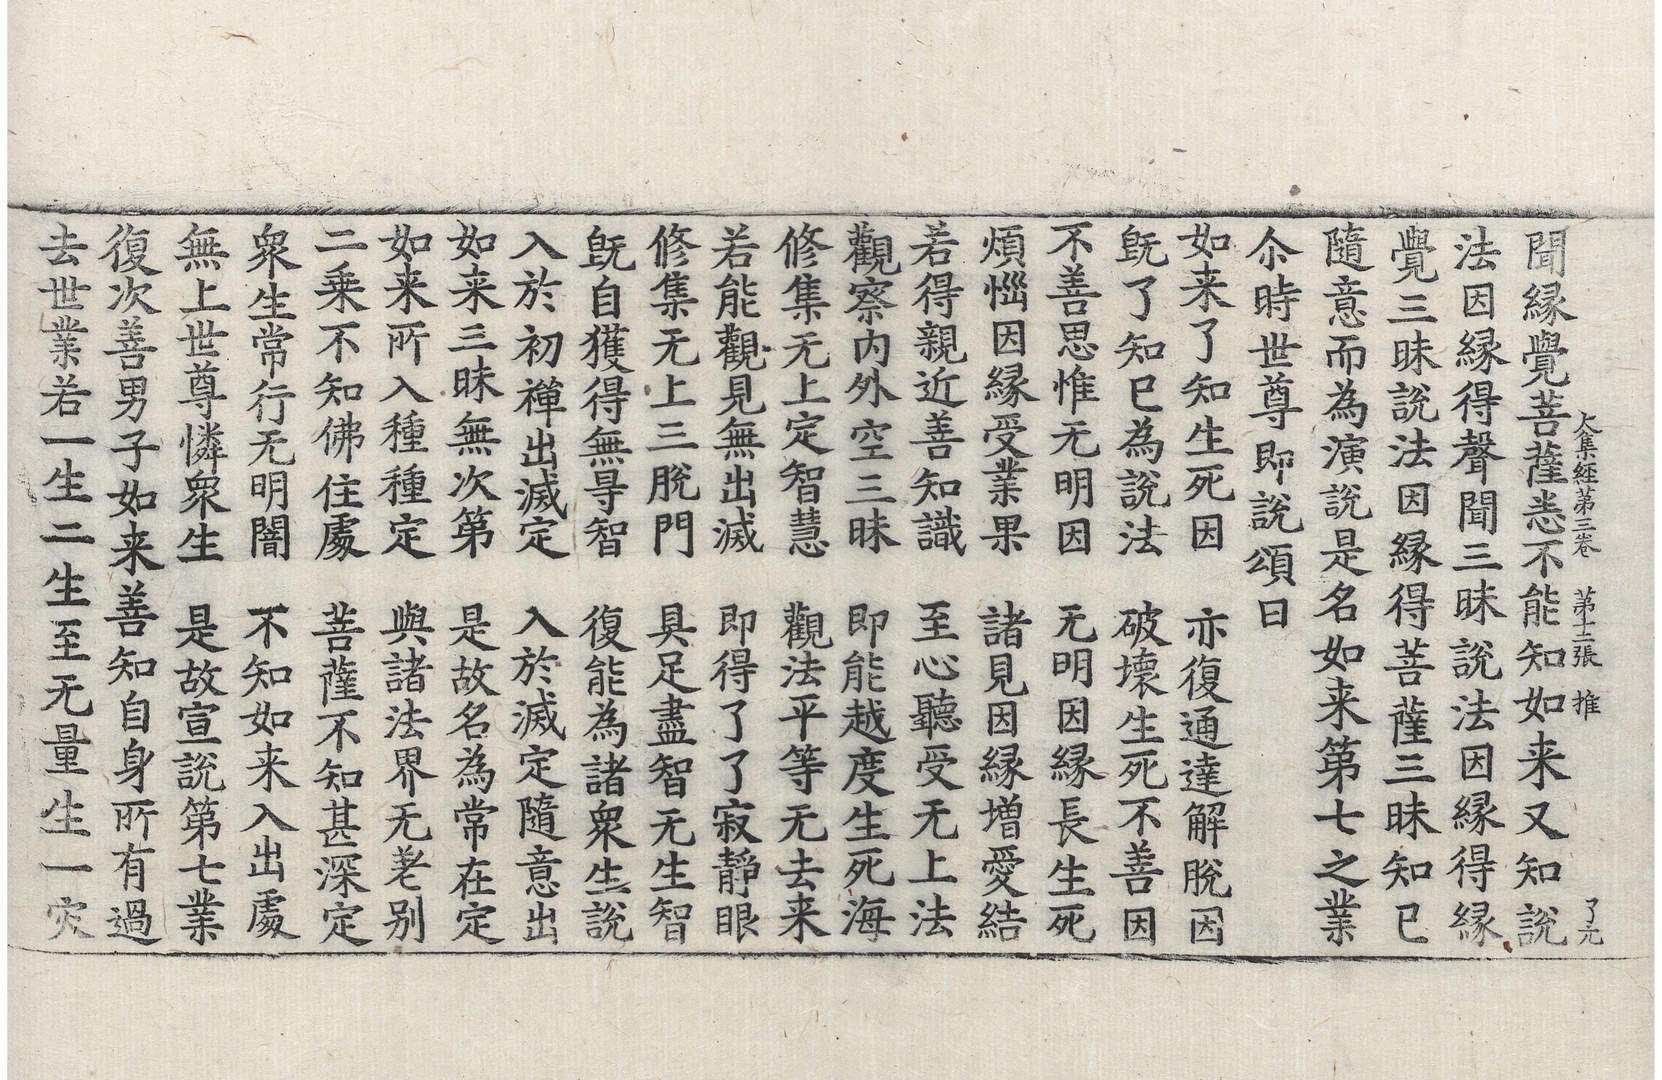 大集經第三卷　第十二張　推　了元
聞縁覺菩薩悉不能知如来又知說
法因縁得聲聞三昧說法因縁得縁
覺三昧說法因縁得菩薩三昧知已
隨意而為演說是名如来第七之業
尒時世尊即說頌曰
如来了知生死因　亦復通達解脫因
旣了知已為說法　破壞生死不善因
不善思惟无明因　无明因縁長生死
煩惱因縁受業果　諸見因縁増愛結
若得親近善知識　至心聽受无上法
觀察内外空三昧　即能越度生死海
修集无上定智慧　觀法平等无去来
若能觀見無出滅　即得了了寂靜眼
修集无上三脫門　具足盡智无生智
旣自獲得無㝵智　復能為諸衆生說
入於初禪出滅定　入於滅定隨意出
如来三昧無次第　是故名為常在定
如来所入種種定　與諸法界无差别
二乗不知佛住處　菩薩不知甚深定
衆生常行无明闇　不知如来入出處
無上世尊憐衆生　是故宣說第七業
復次善男子如来善知自身所有過
去世業若一生二生至无量生一灾